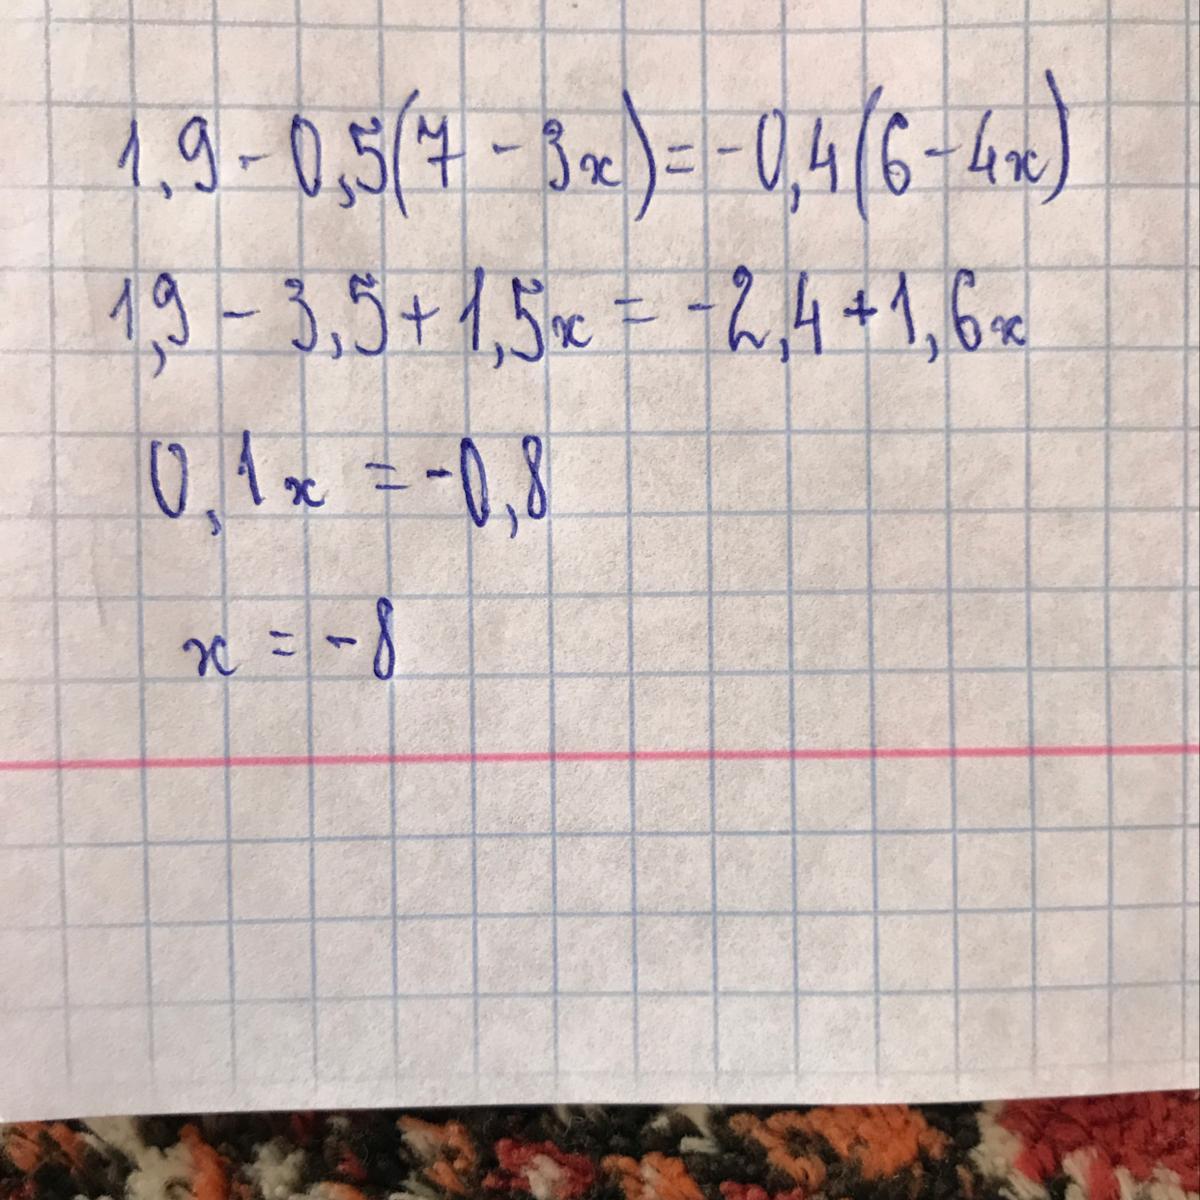 1,9 - 0,5(7 - 3x) = -0,4(6 - 4x)
1,9 - 3,5 + 1,5x = -2,4 + 1,6x
0,1x = -0,8
x = -8